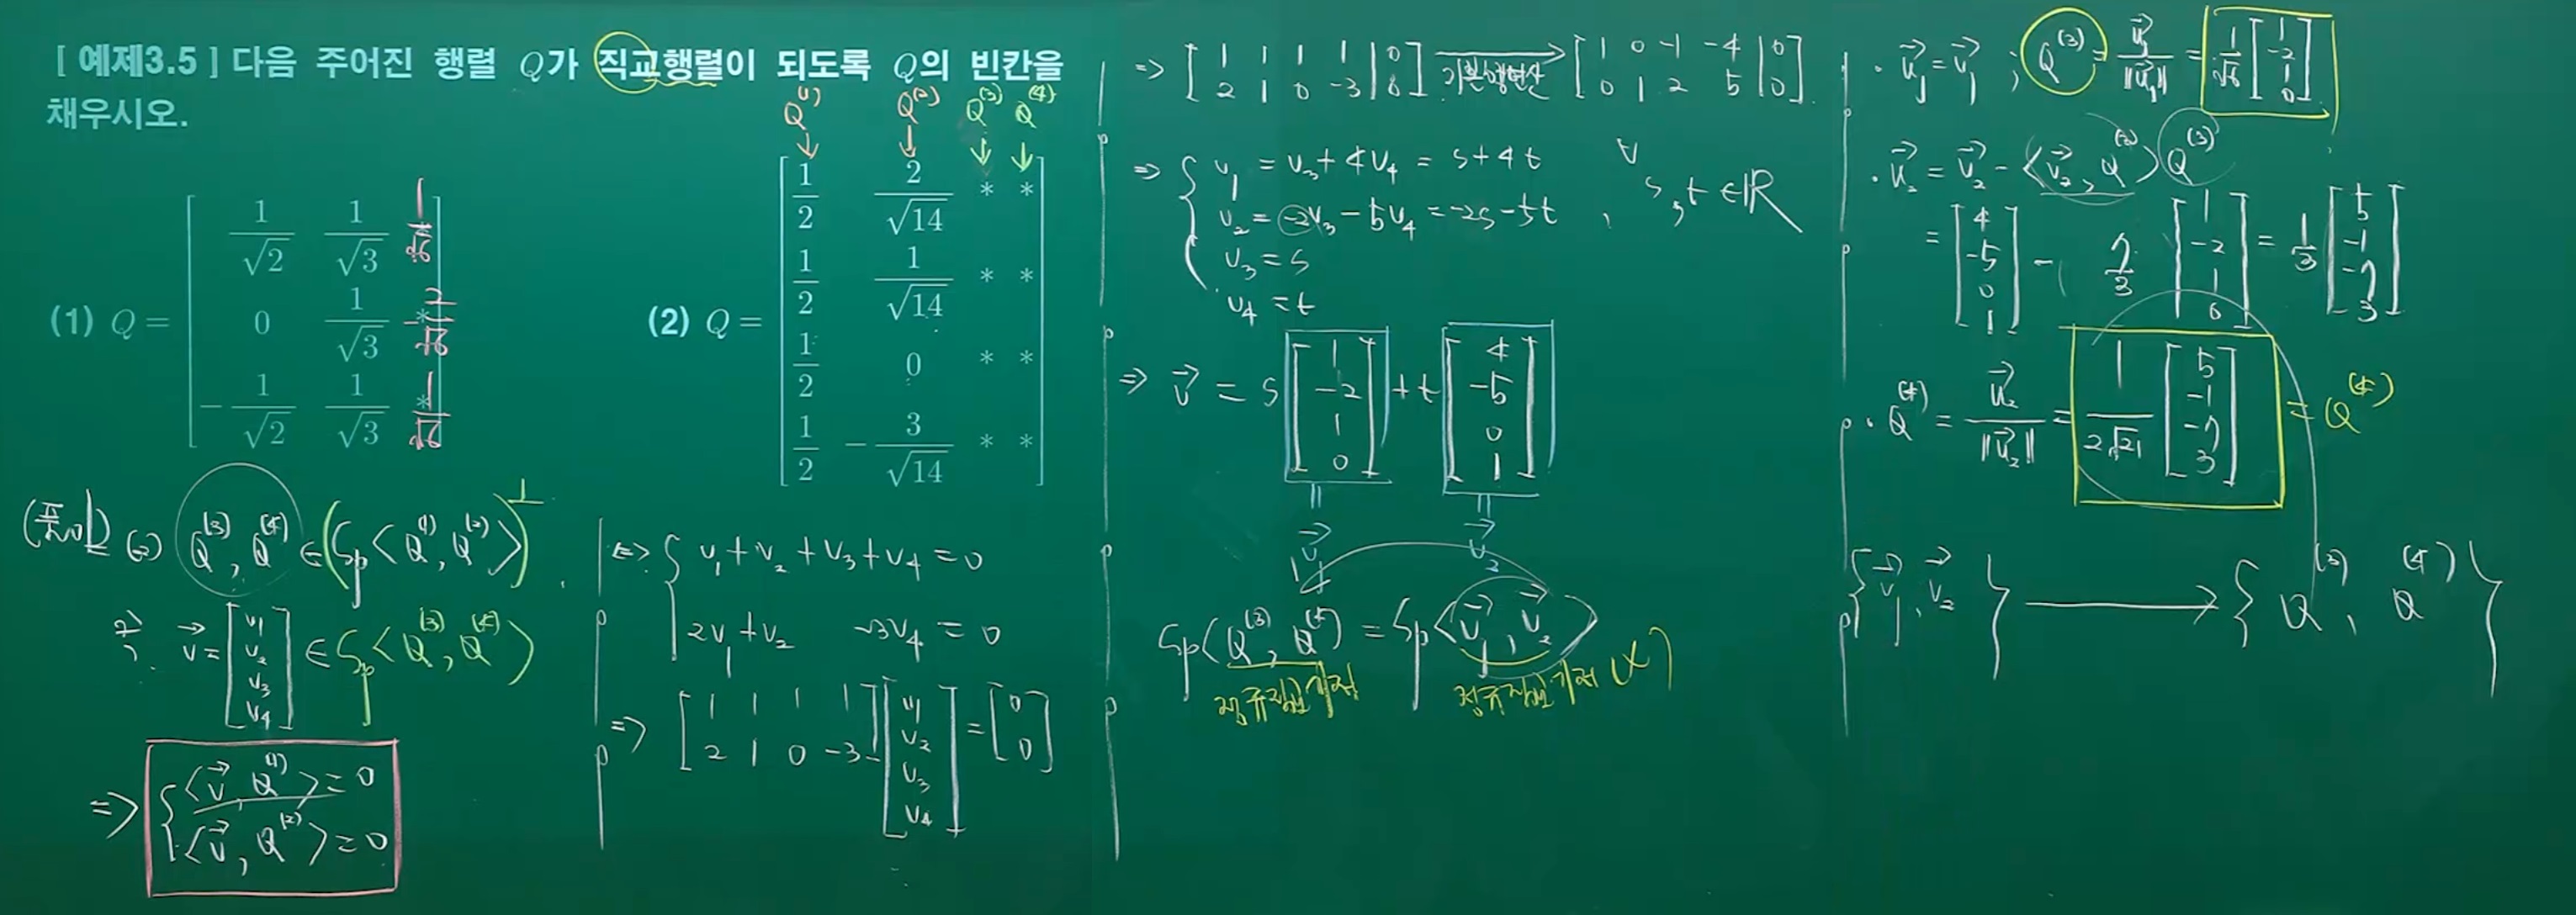 [ 예제3.5 ] 다음 주어진 행렬 Q가 직교행렬이 되도록 Q의 빈칸을
채우시오.
Q⁽¹⁾ Q⁽²⁾ Q⁽³⁾ Q⁽⁴⁾
(1) Q = [ 1/√2 1/√3 1/√6
0 1/√3 -2/√6
-1/√2 1/√3 1/√6 ]
(2) Q = [ 1/2 2/√14 * *
1/2 1/√14 * *
1/2 0 * *
1/2 -3/√14 * * ]
(풀이) (2) Q⁽³⁾, Q⁽⁴⁾ ∈ (Sp< Q⁽¹⁾, Q⁽²⁾ >)^⊥
v⃗ = [ v₁ v₂ v₃ v₄ ] ∈ Sp< Q⁽³⁾, Q⁽⁴⁾ >
=> { <v⃗, Q⁽¹⁾> = 0
<v⃗, Q⁽²⁾> = 0
<=> { v₁ + v₂ + v₃ + v₄ = 0
2v₁ + v₂ -3v₄ = 0
=> [ 1 1 1 1
2 1 0 -3 ] [ v₁ v₂ v₃ v₄ ] = [ 0 0 ]
=> [ 1 1 1 1 | 0
2 1 0 -3 | 0 ] 기본행연산 → [ 1 0 -1 -4 | 0
0 1 2 5 | 0 ]
=> { v₁ = v₃ + 4v₄ = s + 4t
v₂ = -2v₃ - 5v₄ = -2s - 5t , ∀ s, t ∈ ℝ
v₃ = s
v₄ = t
=> v⃗ = s [ 1 -2 1 0 ] + t [ 4 -5 0 1 ]
v⃗₁ v⃗₂
Sp< Q⁽³⁾, Q⁽⁴⁾ > = Sp< v⃗₁, v⃗₂ >
정규직교기저 정규직교기저 (X)
· u⃗₁ = v⃗₁ ; Q⁽³⁾ = u⃗₁/‖u⃗₁‖ = 1/√6 [ 1 -2 1 0 ]
· u⃗₂ = v⃗₂ - <v⃗₂, Q⁽³⁾> Q⁽³⁾
= [ 4 -5 0 1 ] - 7/3 [ 1 -2 1 0 ] = 1/3 [ 5 -1 -7 3 ]
· Q⁽⁴⁾ = u⃗₂/‖u⃗₂‖ = 1/(2√21) [ 5 -1 -7 3 ] = Q⁽⁴⁾
{ v⃗₁, v⃗₂ } → { Q⁽³⁾, Q⁽⁴⁾ }